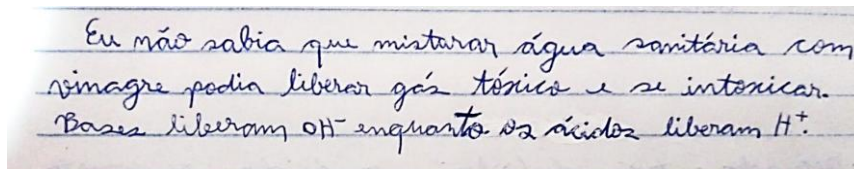 Eu não sabia que misturar água sanitária com
vinagre podia liberar gás tóxico e se intoxicar.
Bases liberam OH⁻ enquanto os ácidos liberam H⁺.